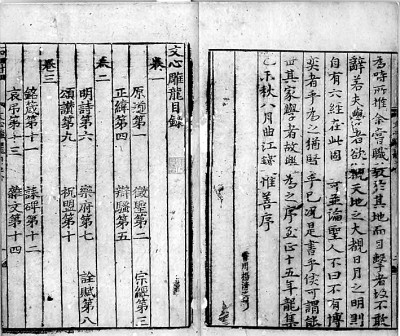 為時所推余嘗職教於其地而目擊者故不敢
辭若夫學者欲觀天地之大覩日月之明則
自有六經在此固可並論聖人不曰不有博
奕者乎為之猶賢乎已况是書乎侯可謂能
世其家學者故樂為之序至正十五年龍集
乙未秋八月曲江錢惟善序
文心雕龍目錄
卷一
原道第一 徵聖第二 宗經第三
正緯第四 辯騷第五
卷二
明詩第六 樂府第七 詮賦第八
頌讚第九 祝盟第十
卷三
銘箴第十一 誄碑第十二
哀弔第十三 雜文第十四